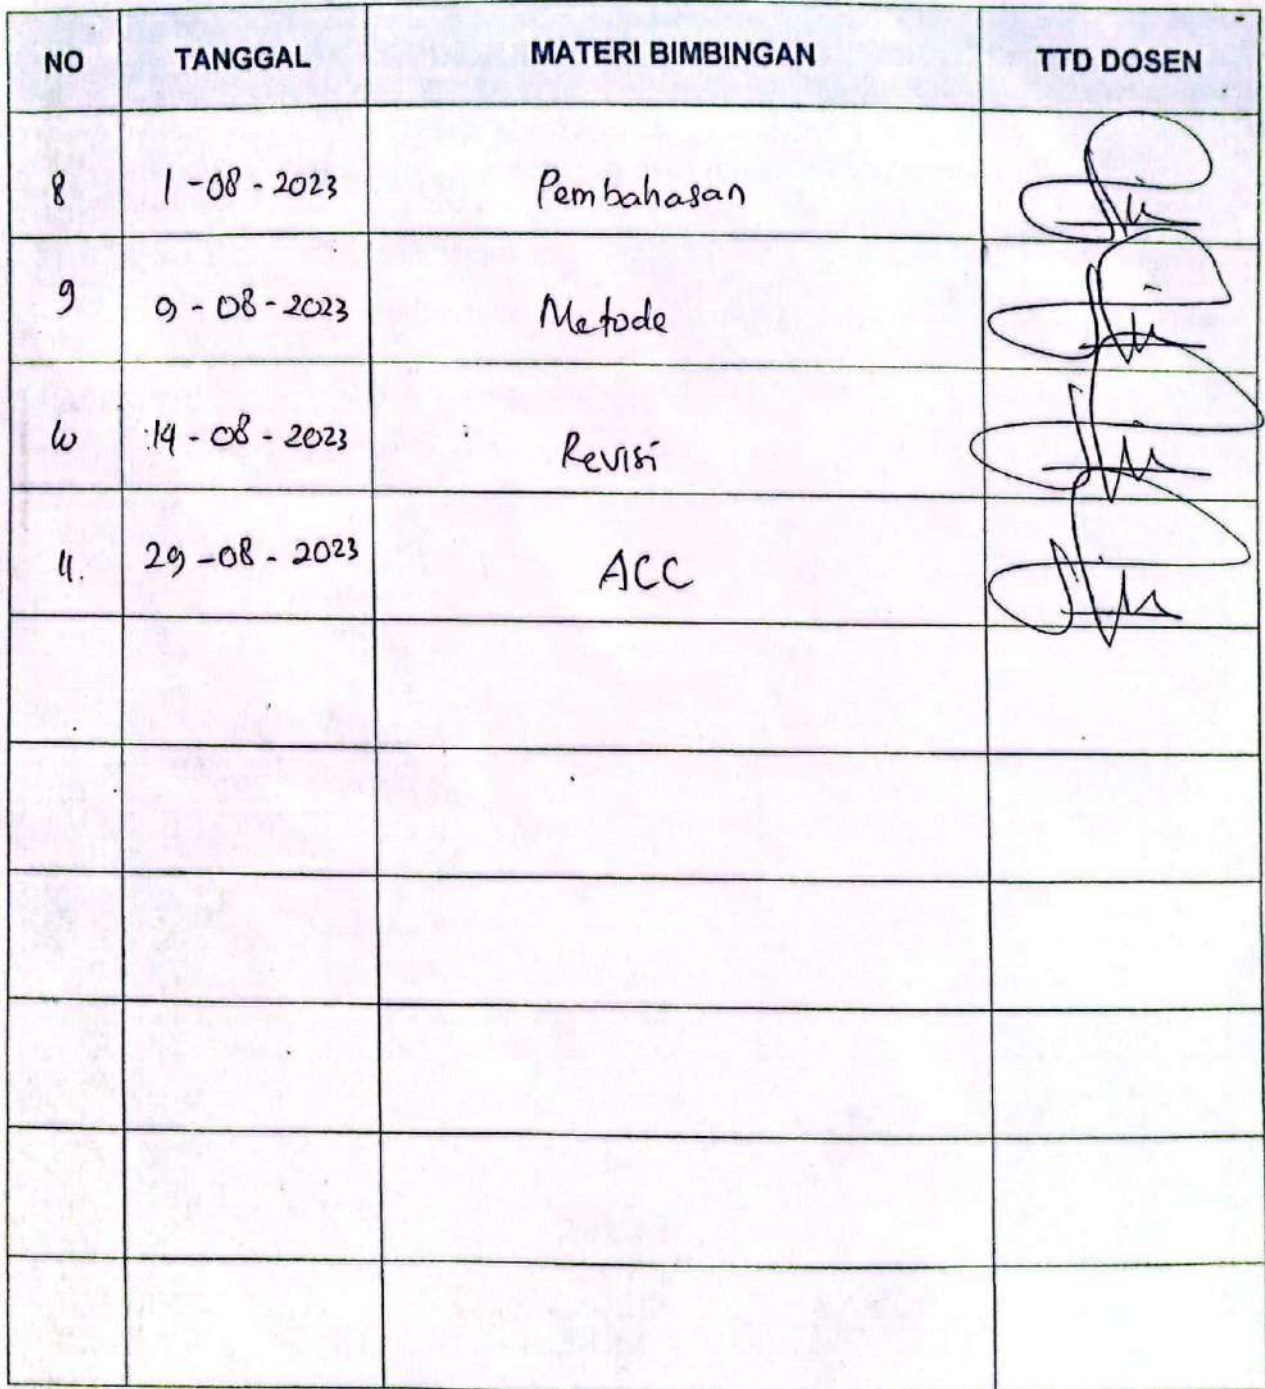 NO TANGGAL MATERI BIMBINGAN TTD DOSEN
8 1-08-2023 Pembahasan
9 9-08-2023 Metode
10 14-08-2023 Revisi
11. 29-08-2023 ACC